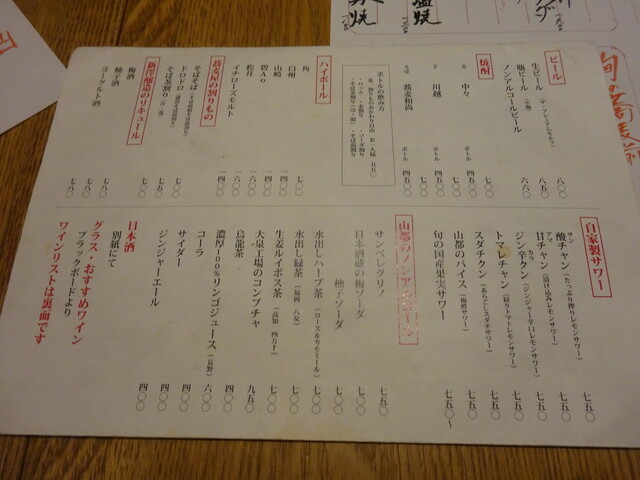 ビール
生ビール（ザ・プレミアムモルツ） 八〇〇
瓶ビール（中瓶） 八五〇
ノンアルコールビール 六六〇
焼酎
麦 中々 七〇〇
ボトル 四五〇〇
芋 川越 七〇〇
ボトル 四五〇〇
そば 蕎麦和尚
ボトル 四五〇〇
ボトルの飲み方
・ロック ・ソーダ割り
・水割り
・そば茶割り（冷・温）
・そば湯割り
ハイボール
角 七〇〇
白州 一四〇〇
山崎 一四〇〇
碧Ao
松井
イチローズモルト
蕎麦屋の割りもの
そばそば
ドロドロ 七〇〇
そば茶割り（冷・温）
新澤醸造のリキュール
梅酒 七八〇
柚子酒 七八〇
ヨーグルト酒 七八〇
自家製サワー
サン
酸チャン（たっぷり搾りレモンサワー） 七五〇
アマ
甘チャン（漬け込みレモンサワー） 七五〇
カラ
ジン辛クン（ジンジャー辛口レモンサワー） 七五〇
トマレチャン（搾りトマトレモンサワー） 七五〇
スダチクン（あらごしスダチサワー） 七五〇
山都のバイス（梅酢サワー） 七五〇
旬の国産果実サワー 七五〇〜
山都のノンアルコール
サンペレグリノ 七五〇
日本酒蔵の梅ソーダ 七〇〇
柚子ソーダ 七〇〇
水出しハーブ茶（ローズ&カモミール） 七〇〇
水出し緑茶（福岡 八女） 七〇〇
生姜ルイボス茶（高知 四万十） 七〇〇
大泉工場のコンブチャ 九五〇
烏龍茶 四〇〇
濃厚100%リンゴジュース（長野） 六〇〇
コーラ 四〇〇
サイダー 四〇〇
ジンジャーエール 四〇〇
日本酒
別紙にて
グラス・おすすめワイン
ブラックボードより
ワインリストは裏面です